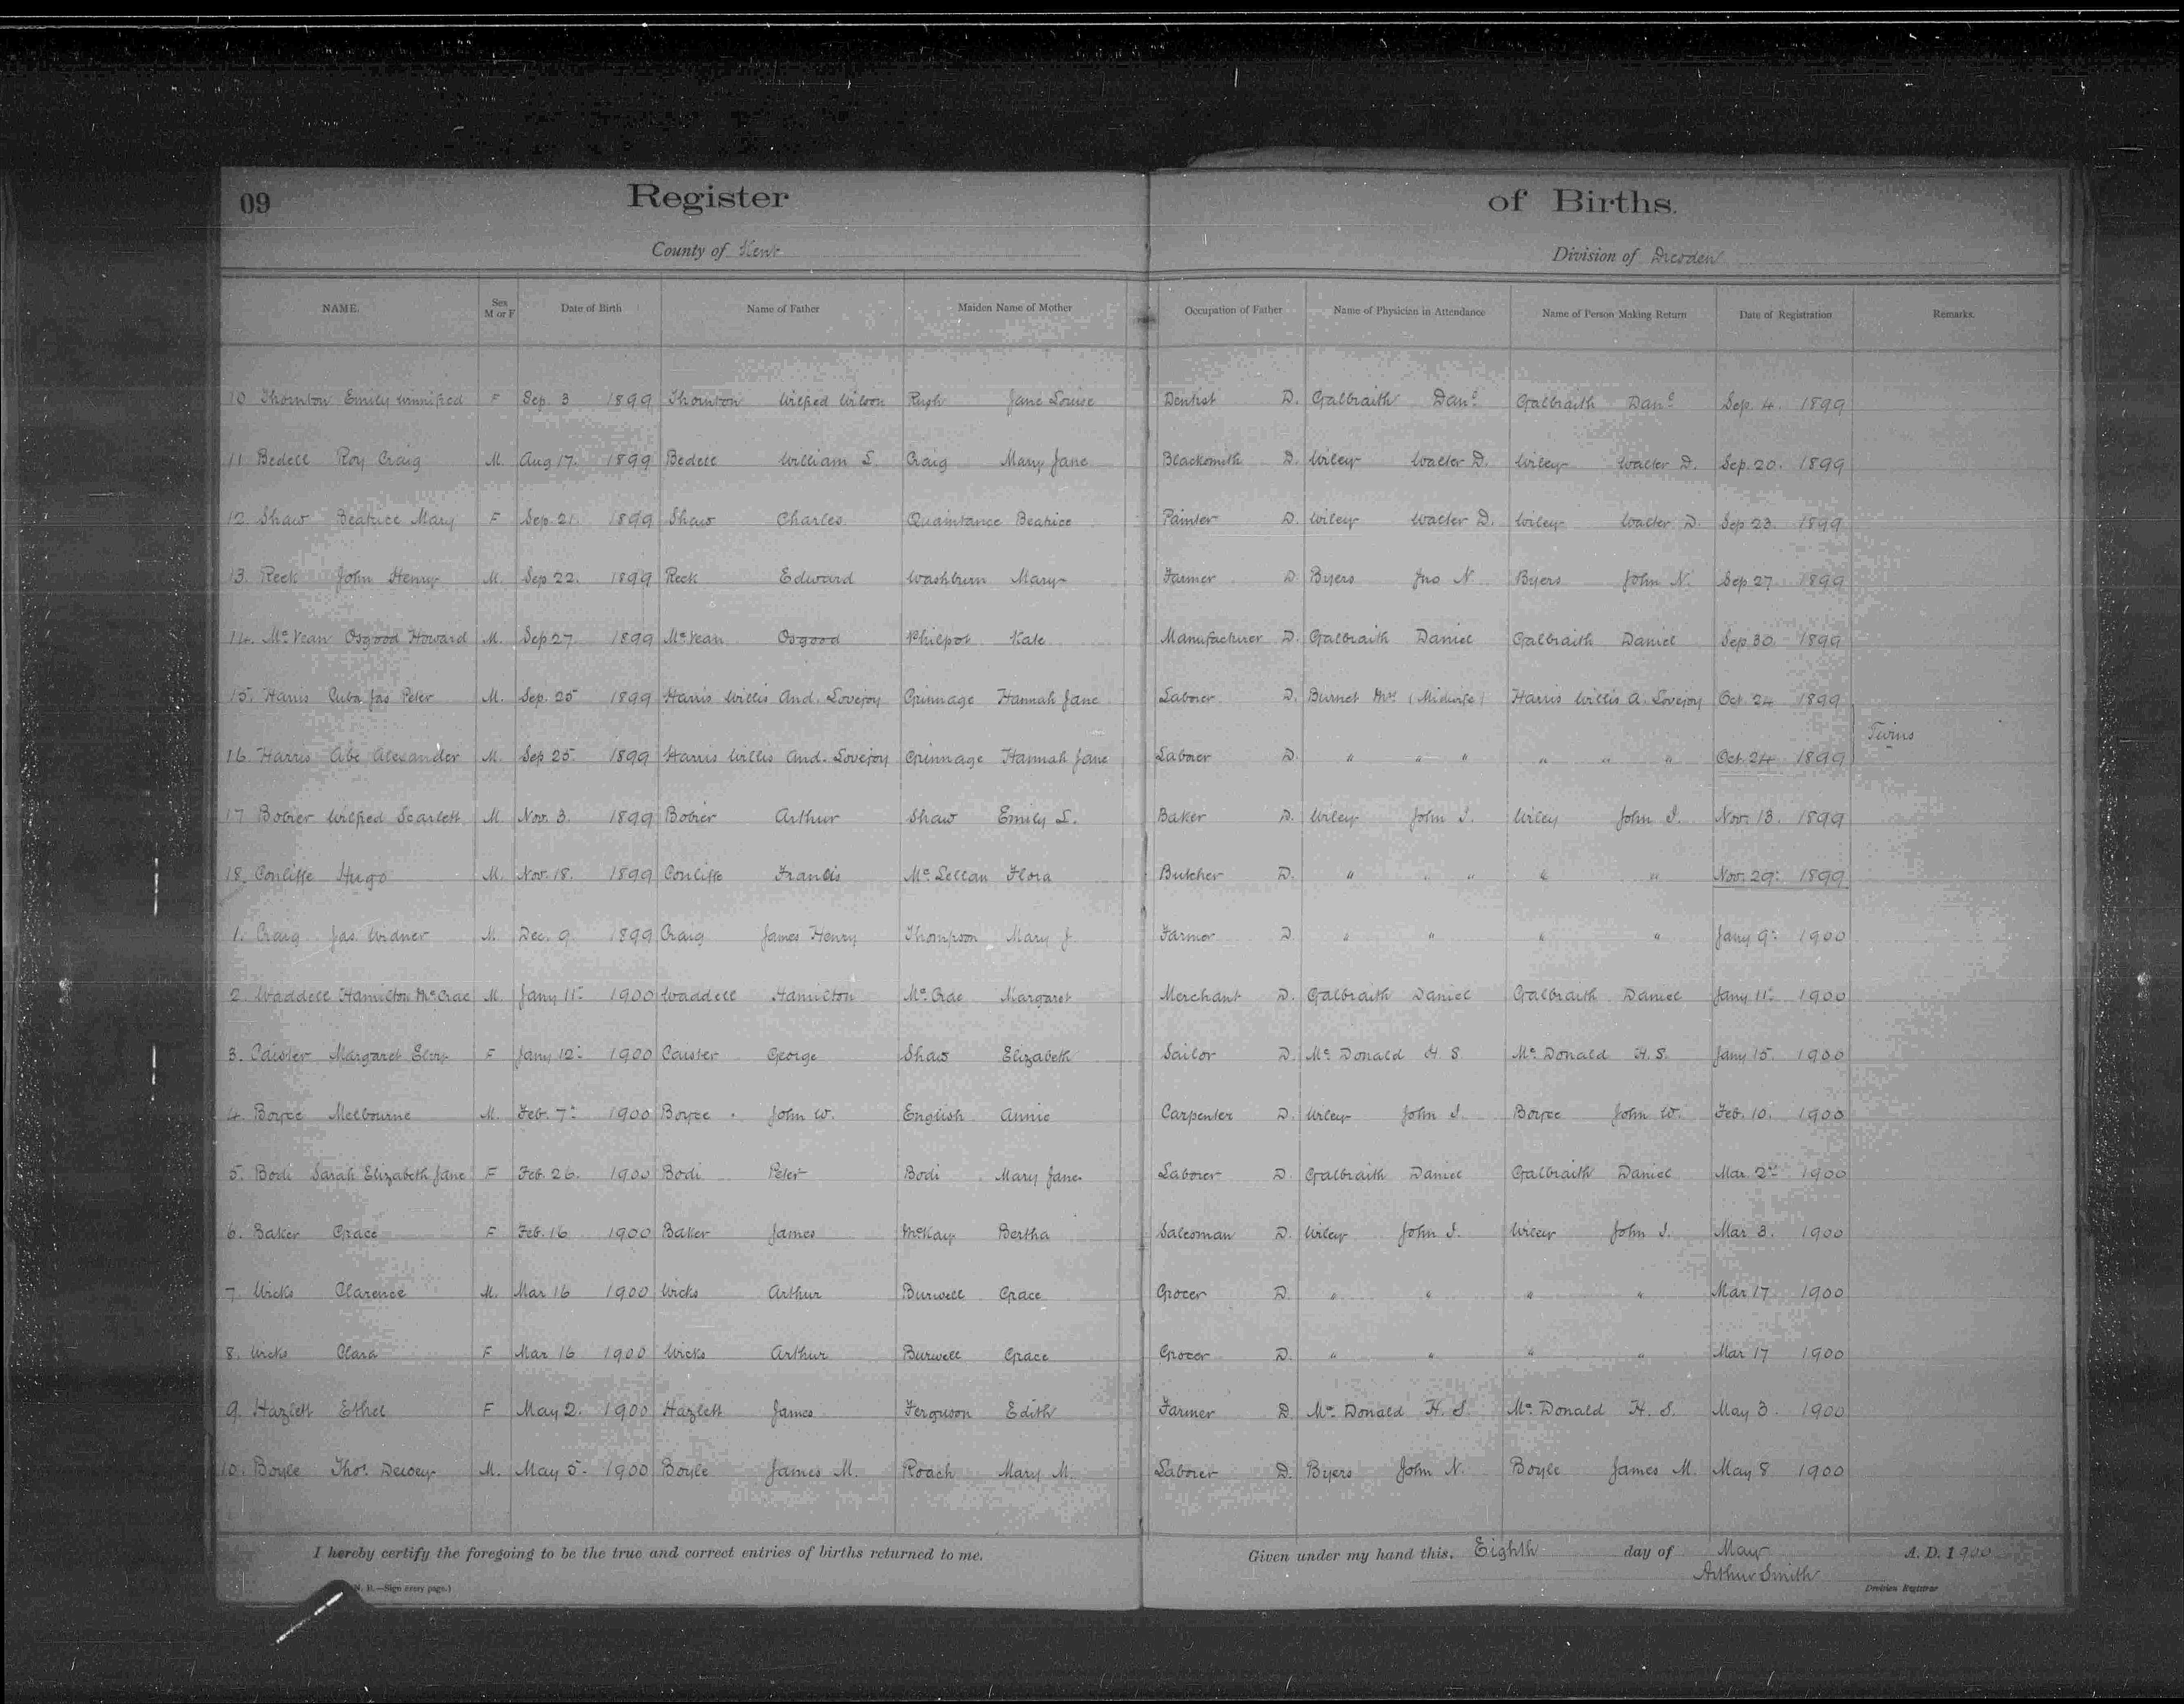 09 Register of Births.
County of Kent Division of Dresden
NAME. Sex M or F Date of Birth Name of Father Maiden Name of Mother Occupation of Father Name of Physician in Attendance Name of Person Making Return Date of Registration Remarks.
10 Thornton Emily Winnifred F Sep. 3 1899 Thornton Wilfred Wilson Jane Louise Dentist D. Galbraith Danl Galbraith Danl Sep. 4. 1899
11 Bedell Roy Craig M. Aug 17. 1899 Bedell William L. Craig Mary Jane Blacksmith D. Wiley Walter D. Wiley Walter D. Sep. 20. 1899
12. Shaw Beatrice Mary F Sep. 21. 1899 Shaw Charles Quaintance Beatrice Painter D. Wiley Walter D. Wiley Walter D. Sep 23. 1899
13. Reck John Henry M. Sep 22. 1899 Reck Edward Washburn Mary Farmer D Byers Jno N. Byers John N. Sep 27 1899
14. McVean Osgood Howard M. Sep 27. 1899 McVean Osgood Philpot Kate Manufacturer D. Galbraith Daniel Galbraith Daniel Sep 30. 1899
15. Harris Cuba Jas Peter M. Sep. 25 1899 Harris Willis And. Lovejoy Grinnage Hannah Jane Laborer D. Burnet Mrs (Midwife) Harris Willis A. Lovejoy Oct 24 1899
Twins
16. Harris Abe Alexander M. Sep 25. 1899 Harris Willis And. Lovejoy Grinnage Hannah Jane Laborer D. " " " " " " Oct. 24 1899
17 Bobier Wilfred Scarlett M Nov. 3. 1899 Bobier Arthur Shaw Emily L. Baker D. Wiley John I. Wiley John I. Nov. 13. 1899
18. Conliffe Hugo M. Nov. 18. 1899 Conliffe Francis McLellan Flora Butcher D. " " " " " Nov. 29. 1899
1. Craig Jas. Widner M. Dec. 9. 1899 Craig James Henry Thompson Mary J. Farmer D. " " " " Jany 9. 1900
2. Waddell Hamilton McCrae M. Jany 11. 1900 Waddell Hamilton McCrae Margaret Merchant D. Galbraith Daniel Galbraith Daniel Jany 11. 1900
3. Caister Margaret F Jany 12. 1900 Caister George Shaw Elizabeth Sailor D. McDonald H. S. McDonald H. S. Jany 15. 1900
4. Boyce Melbourne M. Feb. 7. 1900 Boyce John W. English Annie Carpenter D. Wiley John I. Boyce John W. Feb. 10. 1900
5. Bodi Sarah Elizabeth Jane F Feb. 26. 1900 Bodi Peter Bodi Mary Jane Laborer D. Galbraith Daniel Galbraith Daniel Mar. 2nd 1900
6. Baker Grace F Feb. 16 1900 Baker James McKay Bertha Salesman D. Wiley John I. Wiley John I. Mar 3. 1900
7 Wicks Clarence M. Mar 16 1900 Wicks Arthur Burwell Grace Grocer D. " " " " Mar 17 1900
8. Wicks Clara F Mar 16 1900 Wicks Arthur Burwell Grace Grocer D. " " " " Mar 17 1900
9. Hazlett Ethel F May 2. 1900 Hazlett James Ferguson Edith Farmer D. McDonald H. S. McDonald H. S. May 3. 1900
10. Boyle Thos. Dewey M. May 5. 1900 Boyle James M. Roach Mary M. Laborer D. Byers John N. Boyle James M. May 8 1900
I hereby certify the foregoing to be the true and correct entries of births returned to me. Given under my hand this, Eighth day of May A. D. 1900
Arthur Smith
(N. B.—Sign every page.) Division Registrar